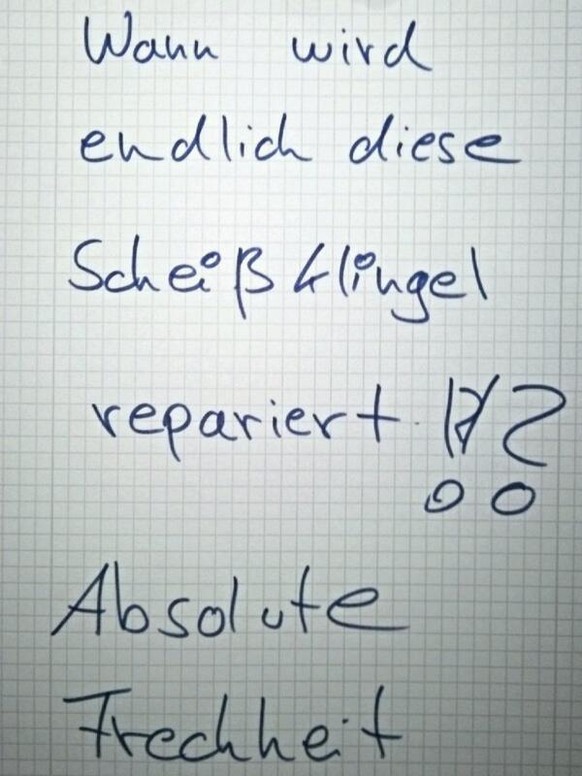 Wann wird
endlich diese
Scheiß Klingel
repariert !?
Absolute
Frechheit